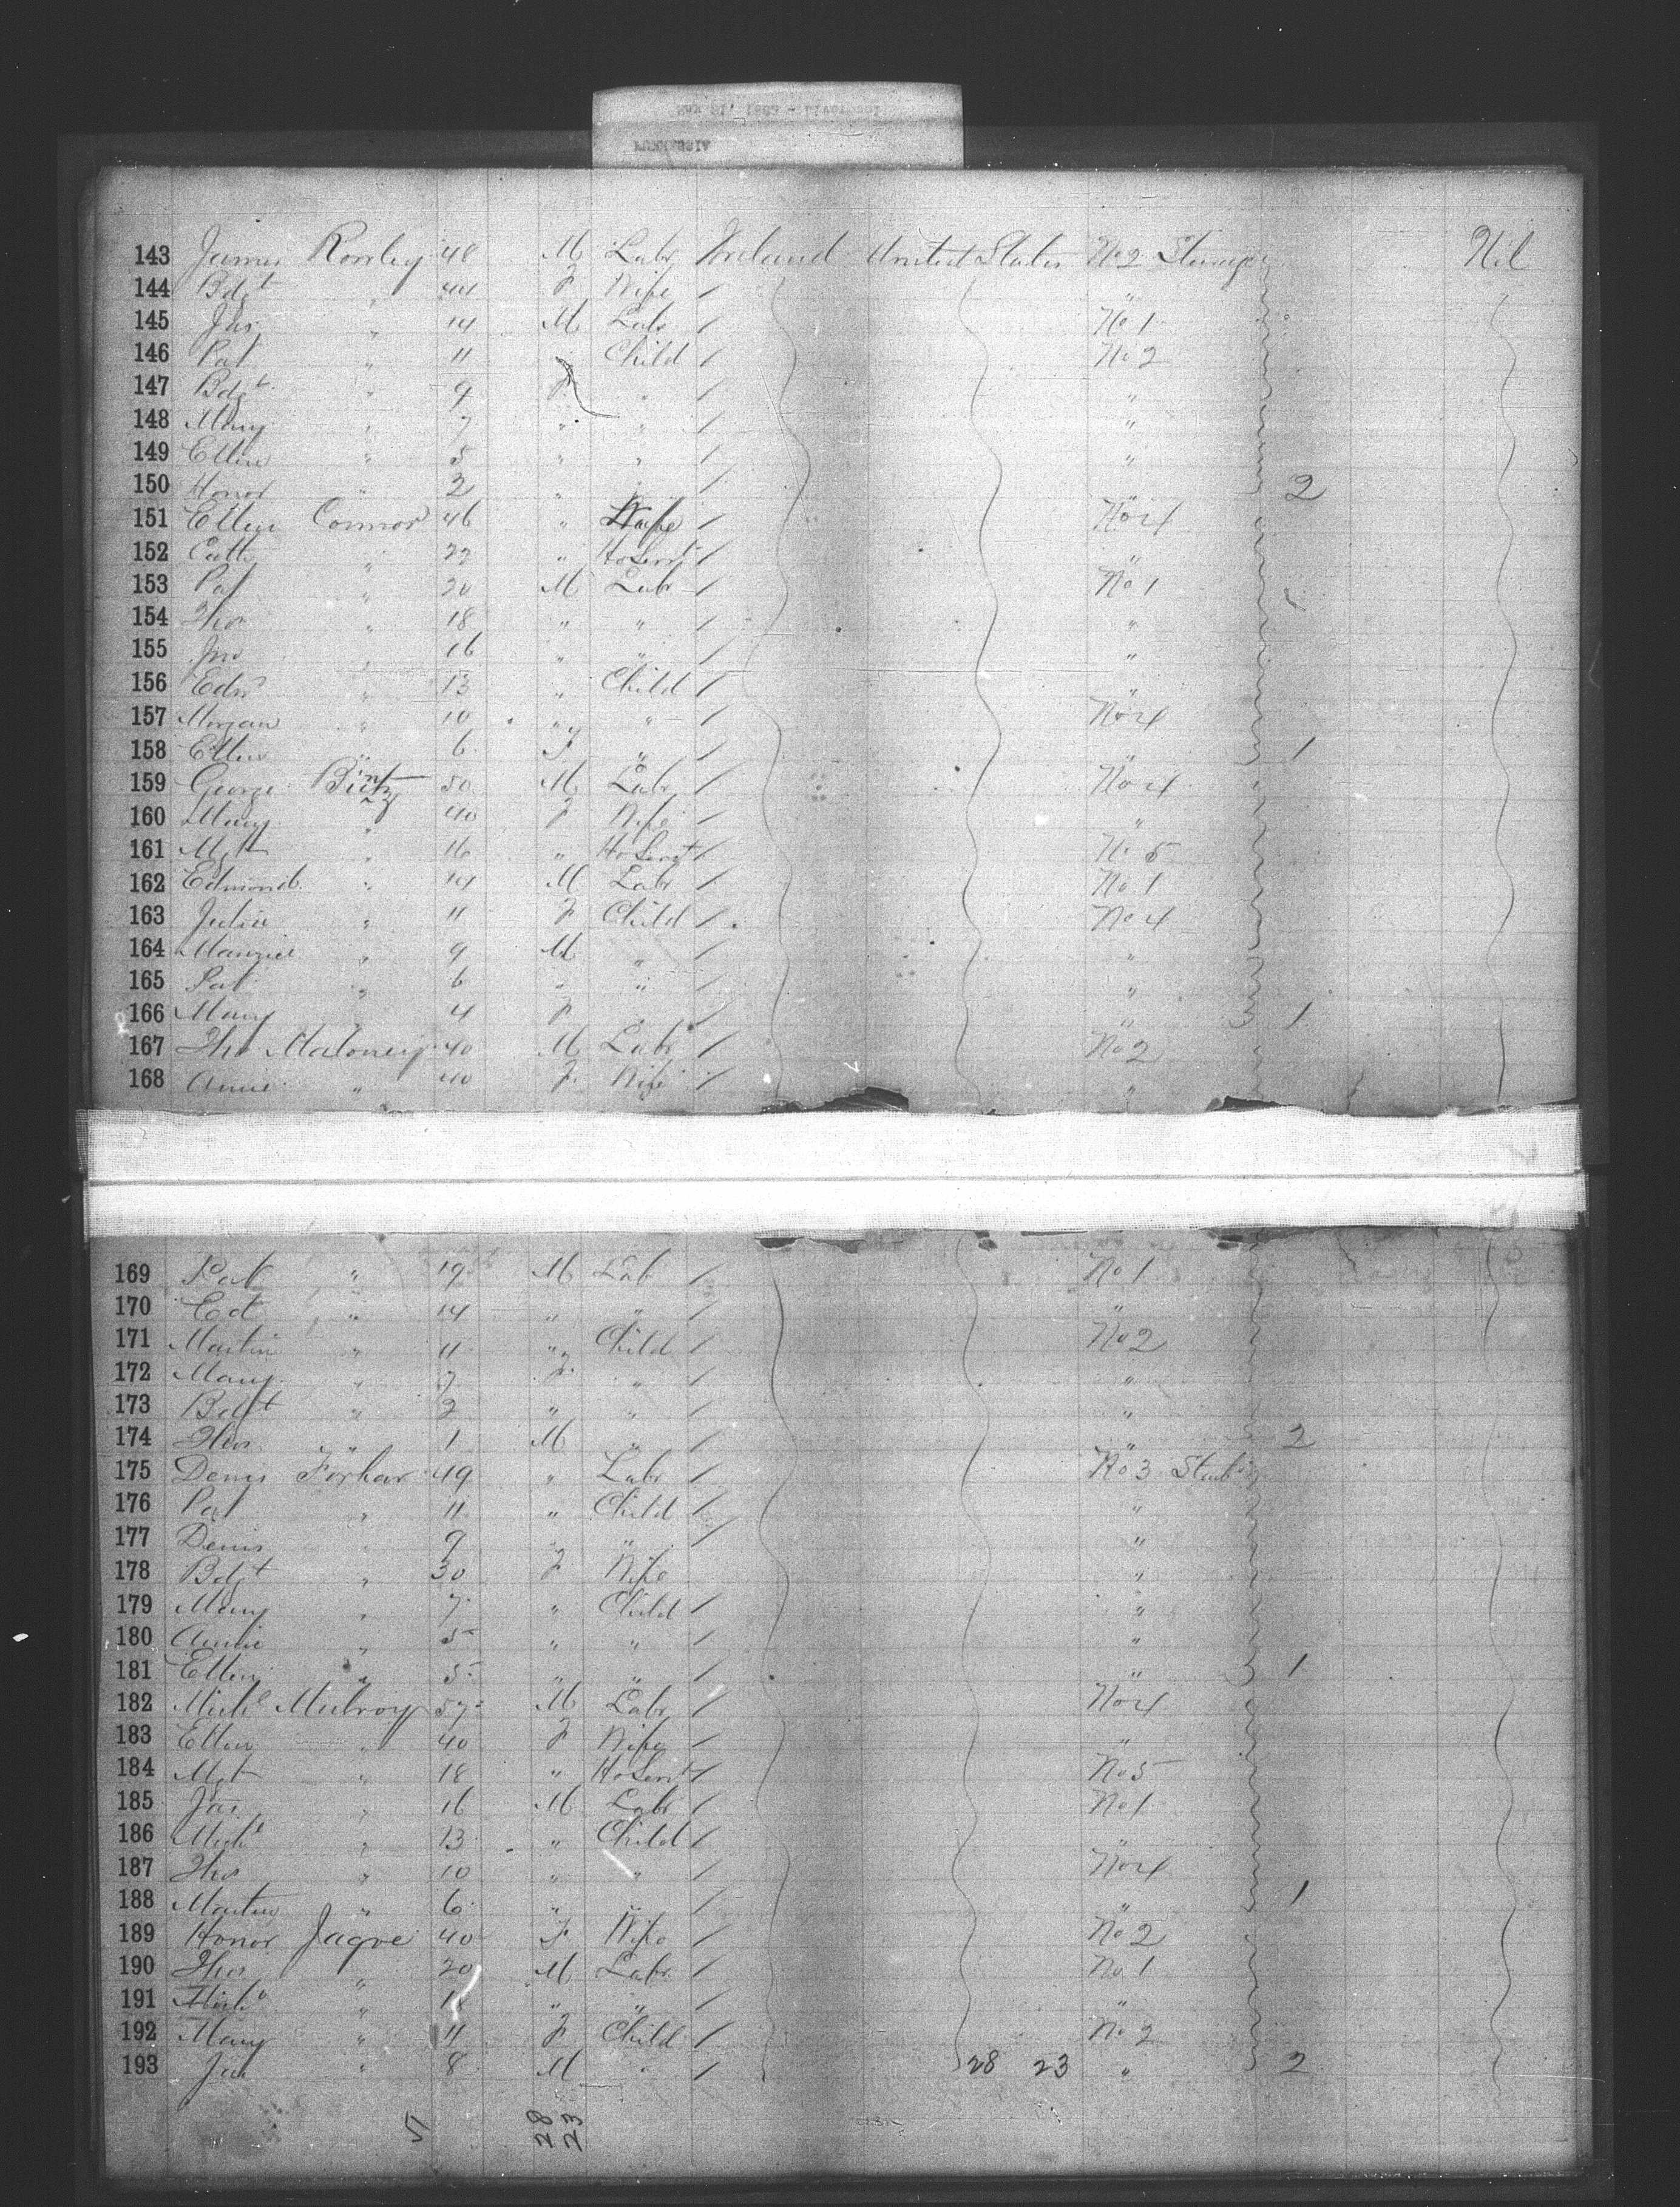 143 James Rowley 48 M Labr Ireland United States No 2 Steerage Nil
144 Bdgt " 44 F Wife / "
145 Jas " 14 M Labr / No 1
146 Pat " 11 " Child / No 2
147 Bdgt " 9 F " / "
148 Mary " 7 " " / "
149 Ellen " 5 " " / "
150 Honor " 2 " " / " 2
151 Ellen Connor 46 " Wife / No 4
152 Cath " 22 " Ho Servt / "
153 Pat " 20 M Labr / No 1
154 Thos " 18 " " / "
155 Jno " 16 " " / "
156 Edwd " 13 " Child / "
157 Morgan " 10 " " / No 4
158 Ellen " 6 F " / " 1
159 George 50 M Labr / No 4
160 Mary " 40 F Wife / "
161 Mgt " 16 " Ho Servt / No 5
162 Edmond " 14 M Labr / No 1
163 Julia " 11 F Child / No 4
164 Maurice " 9 M " / "
165 Pat " 6 " " / "
166 Mary " 4 F " / " 1
167 Thos Maloney 40 M Labr / No 2
168 Annie " 40 F Wife / "
169 Pat " 19 M Labr / No 1
170 Ed " 14 " " / "
171 Martin " 11 " Child / No 2
172 Mary " 7 F " / "
173 Bdgt " 2 " " / "
174 Thos " 1 M " / " 2
175 Denis Forhar 49 " Labr / No 3 Starb
176 Pat " 11 " Child / "
177 Denis " 9 " " / "
178 Bdgt " 30 F Wife "
179 Mary " 7 " Child / "
180 Annie " 5 " " / "
181 Ellen " 5 " " / " 1
182 Michl Mulroy 57 M Labr / No 4
183 Ellen " 40 F Wife / "
184 Mgt " 18 " Ho Servt / No 5
185 Jas " 16 M Labr / No 1
186 Michl " 13 " Child / "
187 Thos " 10 " " / No 4
188 Martin " 6 " " / " 1
189 Honor Jagoe 40 F Wife / No 2
190 Thos " 20 M Labr / No 1
191 Michl " " " / "
192 Mary " 11 F Child / No 2
193 Jas " 8 M " / 28 23 " 2
51 28 23